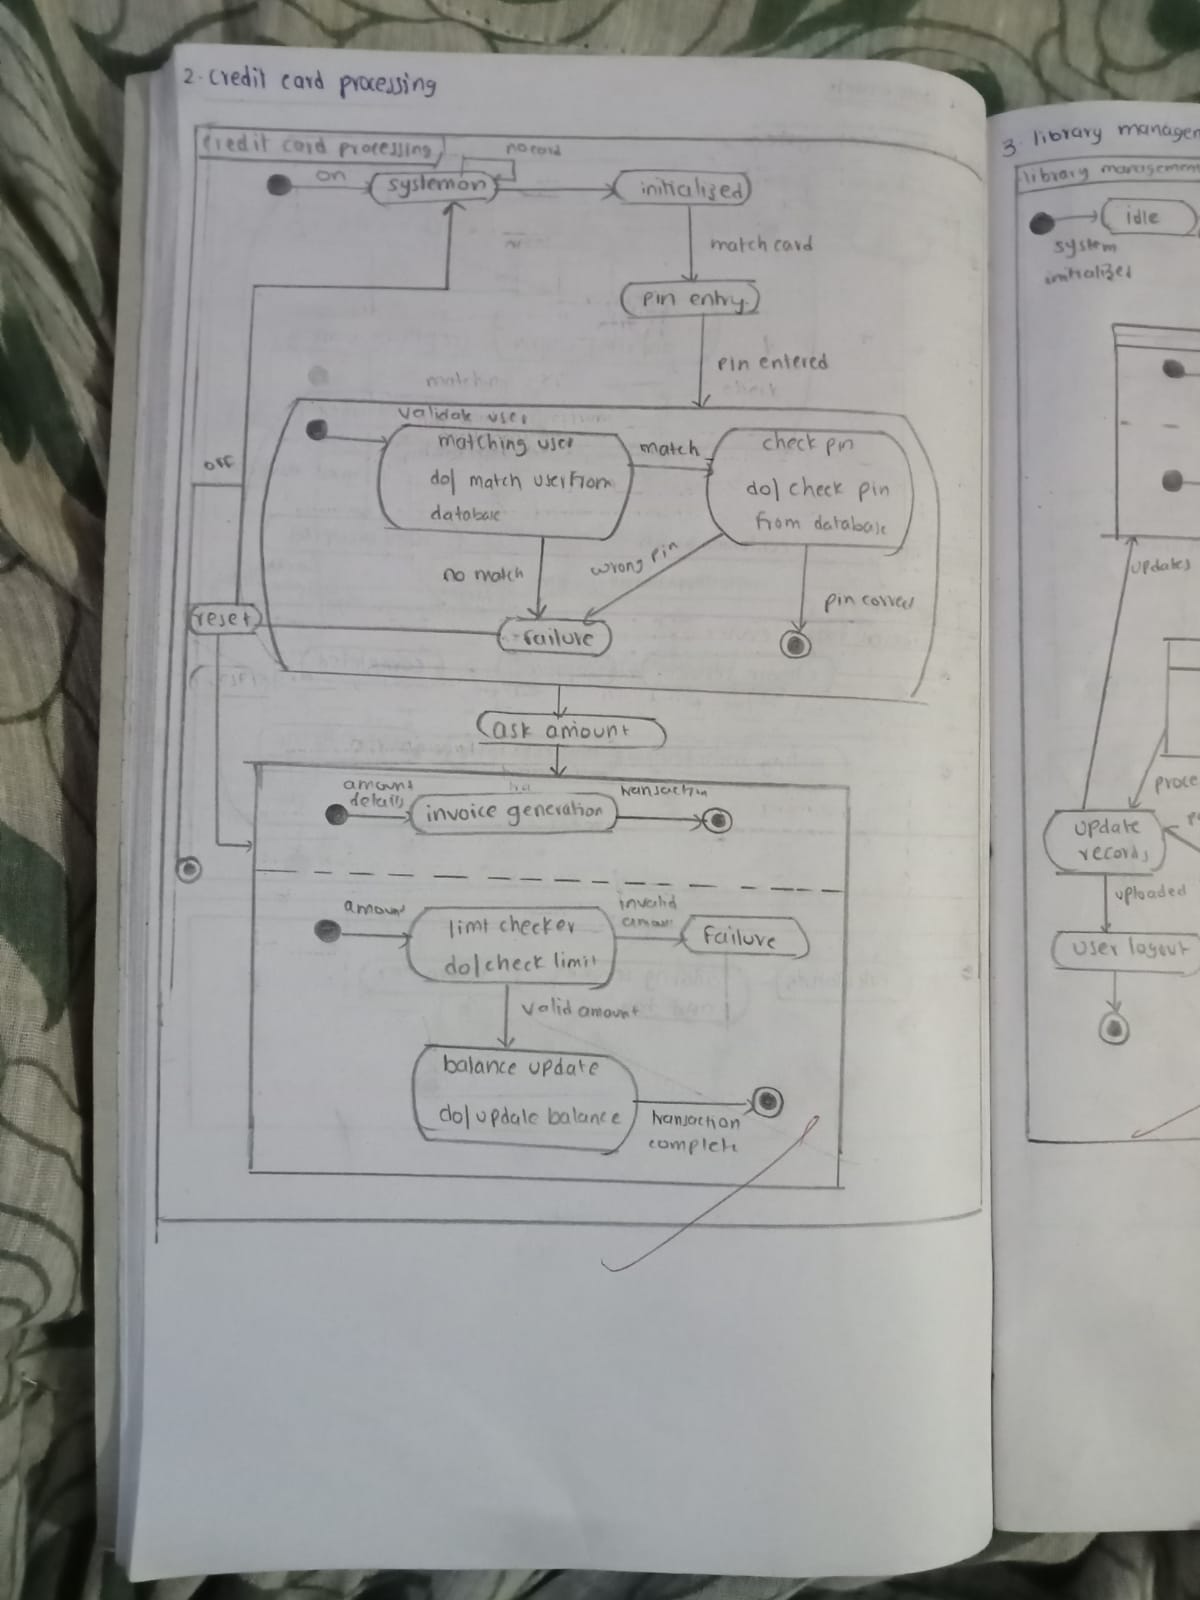 2. Credit card processing
Credit card processing
no card
on
systemon
initialized
match card
pin entry
pin entered
validate user
matching user
do/ match user from
database
match
check pin
do/ check pin
from database
off
no match
wrong pin
pin correct
reset
failure
ask amount
amount
details
invoice generation
transaction
amount
limt checker
do/check limit
invalid
amount
Failure
valid amount
balance update
do/update balance
transaction
complete
3. library managem
library management
idle
system
initialized
updates
proce
update
records
uploaded
user logout